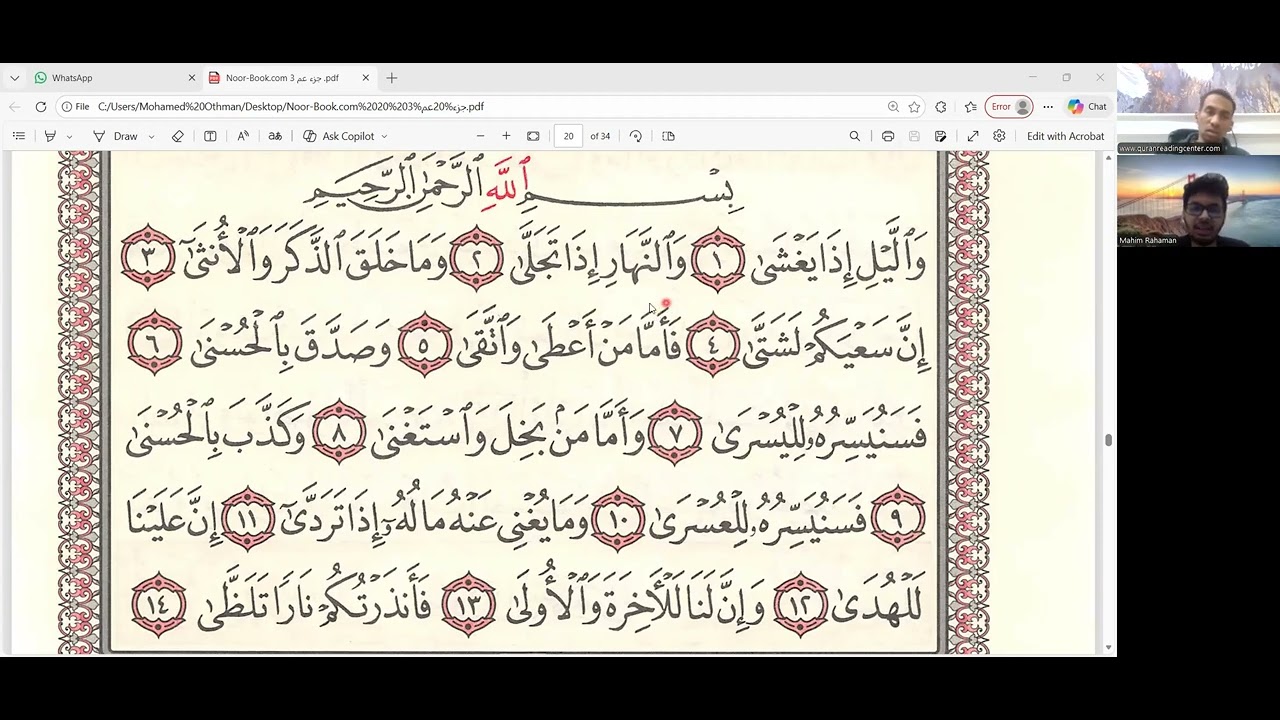 WhatsApp
Noor-Book.com جزء عم 3 .pdf
File C:/Users/Mohamed%20Othman/Desktop/Noor-Book.com%2020%203%جزء%20عم.pdf
Error
Chat
Draw
Ask Copilot
20 of 34
Edit with Acrobat
www.quranreadingcenter.com
Mahim Rahaman
بِسْمِ ٱللَّهِ ٱلرَّحْمَٰنِ ٱلرَّحِيمِ
وَٱلَّيْلِ إِذَا يَغْشَىٰ ١ وَٱلنَّهَارِ إِذَا تَجَلَّىٰ ٢ وَمَا خَلَقَ ٱلذَّكَرَ وَٱلْأُنثَىٰٓ ٣
إِنَّ سَعْيَكُمْ لَشَتَّىٰ ٤ فَأَمَّا مَنْ أَعْطَىٰ وَٱتَّقَىٰ ٥ وَصَدَّقَ بِٱلْحُسْنَىٰ ٦
فَسَنُيَسِّرُهُۥ لِلْيُسْرَىٰ ٧ وَأَمَّا مَنۢ بَخِلَ وَٱسْتَغْنَىٰ ٨ وَكَذَّبَ بِٱلْحُسْنَىٰ
٩ فَسَنُيَسِّرُهُۥ لِلْعُسْرَىٰ ١٠ وَمَا يُغْنِى عَنْهُ مَالُهُۥٓ إِذَا تَرَدَّىٰٓ ١١ إِنَّ عَلَيْنَا
لَلْهُدَىٰ ١٢ وَإِنَّ لَنَا لَلْـَٔاخِرَةَ وَٱلْأُولَىٰ ١٣ فَأَنذَرْتُكُمْ نَارًا تَلَظَّىٰ ١٤